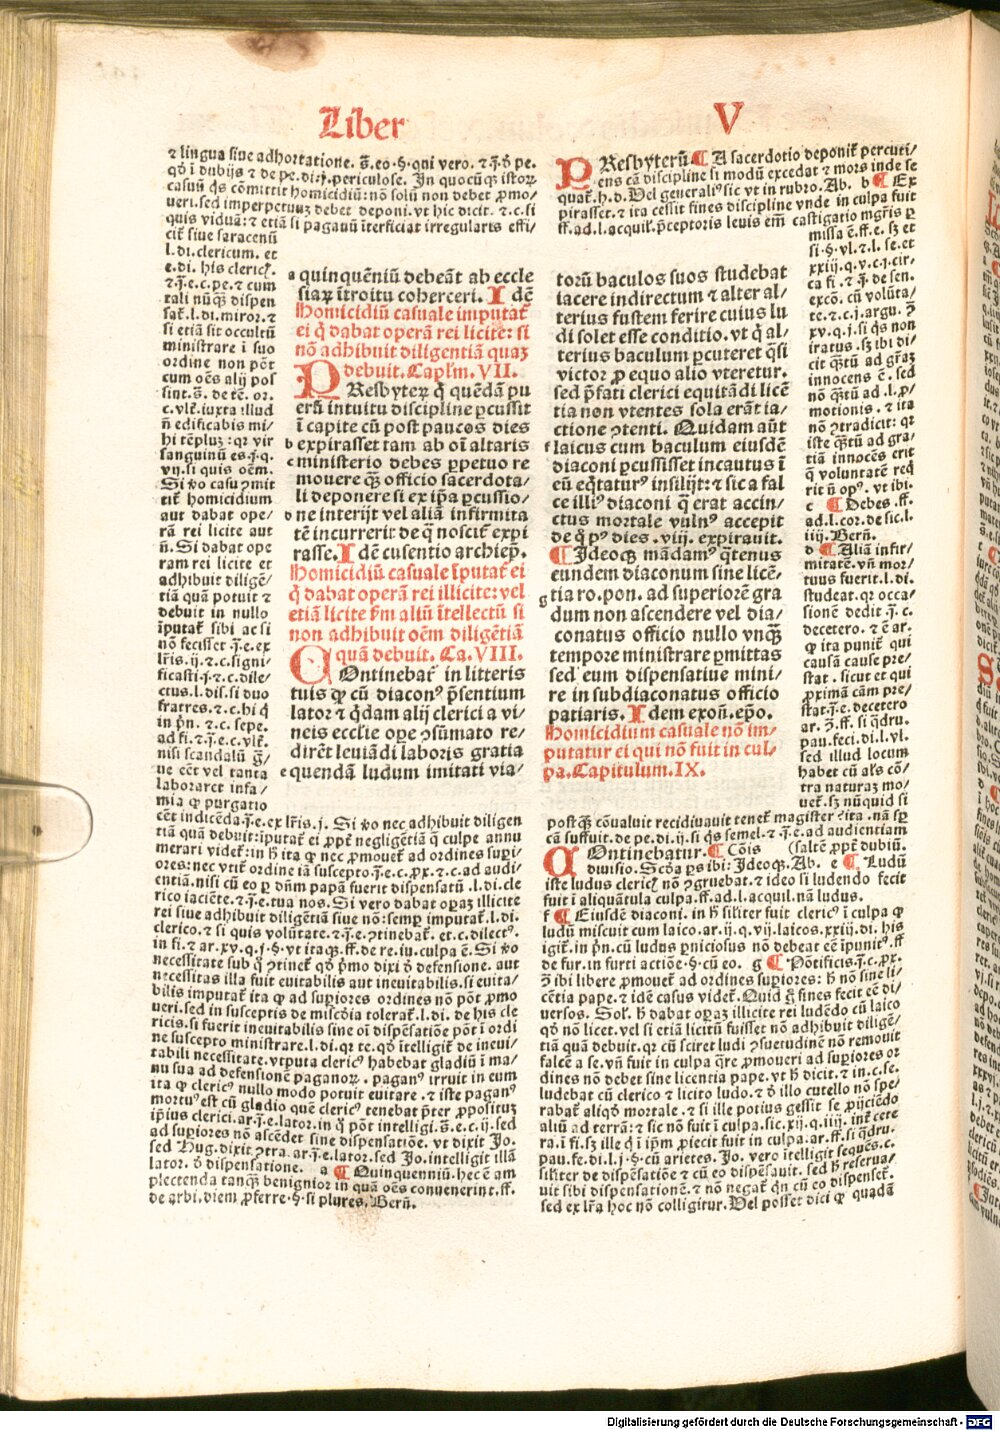 Liber V
⁊ lingua siue adhortatione. g̃. eo. §. qui vero. ⁊ q̃. ð pe.
qð i dubijs ⁊ de pe. di. j. periculose. In quocũqꝫ istoꝝ
casuũ q̃s cõmittit homicidiũ: nõ solũ non debet ꝓmo/
ueri. sed imperpetuuꝫ debet deponi. vt hic dicit. ⁊ c. si
quis viduã: ⁊ etiã si paganũ ĩterficiat irregularis effi/
cit̃ siue saracenũ
l. di. clericum. et
e. di. his clericꝭ.
⁊ q̃. e. c. pe. ⁊ cum
tali nũqꝫ dispen
sat̃. l. di. miror. ⁊
si etiã sit occultũ
ministrare i suo
ordine non põt
cum oẽs alij pos
sint. g̃. de tẽ. or.
c. vlt̃. iuxta illud
ñ edificabis mi/
hi tẽpluꝫ: qꝛ vir
sanguinũ es. j. q.
vij. si quis oẽm.
Si ꝟo casu ꝯmit
tit̃ homicidium
aut dabat ope/
rã rei licite aut
ñ. Si dabat ope
ram rei licite et
adhibuit diligẽ/
tiã quã potuit ⁊
debuit in nullo
ĩputat̃ sibi ac si
nõ fecisset. q̃. e. ex
lr̃is. ij. ⁊ c. signi/
ficasti. j. ⁊ c. dile/
ctus. l. dis. si duo
fratres. ⁊ c. hi q̃
in pñ. ⁊ c. sepe.
ad fi. ⁊ q̃. e. c. vlt̃.
nisi scandalũ g̃/
ue eẽt vel tanta
laboraret infa/
mia ꝙ purgatio
eẽt indicẽda. q̃. e. ex lr̃is. j. Si ꝟo nec adhibuit diligen
tiã quã debuit: iputat̃ ei ꝓpt̃ negligẽtiã q̃ culpe annu
merari videt̃: in ħ ita ꝙ nec ꝓmouet̃ ad ordines supi/
ores: nec vtit̃ ordine iã suscepto. q̃. e. c. ꝓx. ⁊ c. ad audi/
entiã. nisi cũ eo ꝑ dñm papã fuerit dispensatũ. l. di. cle
rico iaciẽte. ⁊ q̃. e. tua nos. Si vero dabat opaꝫ illicite
rei siue adhibuit diligẽtiã siue nõ: semꝑ imputat̃. l. di.
clerico. ⁊ si quis volũtate. ⁊ q̃. e. ꝯtinebat̃. et c. dilectꝰ.
in fi. ⁊ ar. xv. q. j. §. vt itaqꝫ. ff. de re. iu. culpa ẽ. Si ꝟo
necessitate sub q̃ ꝯtinet̃ qð pͥmo dixi ð defensione. aut
necessitas illa fuit euitabilis aut ineuitabilis. si euita/
bilis imputat̃ ita ꝙ ad supiores ordines nõ põt ꝓmo
ueri. sed in susceptis de mĩscðia tolerat̃. l. di. de his cle
ricis. si fuerit ineuitabilis sine oĩ dispẽsatiõe põt i ordi
ne suscepto ministrare. l. di. qꝛ te. qð ĩtelligit̃ de ineui/
tabili necessitate. vtputa clericꝰ habebat gladiũ i ma/
nu sua ad defensionẽ paganoꝝ. paganꝰ irruit in eum
ita ꝙ clericꝰ nullo modo potuit euitare. ⁊ iste paganꝰ
mortuꝰ est cũ gladio quẽ clericꝰ tenebat p̃ter ꝓpositũ
ip̃ius clerici. ar. q̃. e. lator. in q̃ põt intelligi. g̃. e. c. ij. sed
ad supiores nõ ascẽdet sine dispensatiõe. vt dixit Jo.
sed Hug. dixit ꝯtra. ar. q̃. e. lator. sed Jo. intelligit illã
lator. ð dispensatione. a ¶ Quinquenniũ. hec ẽ am
plectenda tanqꝫ benignior in quã oẽs conuenerint. ff.
de arbi. diem ꝓferre. §. si plures. Berñ.
a quinquẽniũ debeãt ab eccle
siaꝝ ĩtroitu coherceri. Idẽ
Homicidiũ casuale imputat̃
ei q̃ dabat operã rei licite: si
nõ adhibuit diligentiã quaꝫ
debuit. Caplm̃. VII.
PResbyteꝝ q̃ quẽdã pu
erũ intuitu discipline ꝑcussit
ĩ capite cũ post paucos dies
b expirasset tam ab oĩ altaris
c ministerio debes ꝑpetuo re
mouere qꝫ officio sacerdota/
li deponere si ex ip̃a ꝑcussio/
d ne interijt vel aliã infirmita
tẽ incurrerit de q̃ noscit̃ expi
rasse. Idẽ cusentio archiep̃.
Homicidiũ casuale ĩputat̃ ei
q̃ dabat operã rei illicite: vel
etiã licite ẜm aliũ ĩtellectũ si
non adhibuit oẽm diligẽtiã
quã debuit. Ca. VIII.
COntinebat̃ in litteris
tuis ꝙ cũ diaconꝰ p̃sentium
lator ⁊ q̃dam alij clerici a vi/
neis ecclie ope ꝯsũmato re/
dirẽt leuiãdi laboris gratia
e quendã ludum imitati via/
torũ baculos suos studebat
iacere indirectum ⁊ alter al/
terius fustem ferire cuius lu
di solet esse conditio. vt q̃ al/
terius baculum ꝑcuteret q̃si
victor ꝓ equo alio vteretur.
sed p̃fati clerici equitãdi licẽ
tia non vtentes sola erãt ia/
ctione ꝯtenti. Quidam aũt
f laicus cum baculum eiusdẽ
diaconi ꝑcussisset incautus ĩ
eũ eq̃taturꝰ insilijt: ⁊ sic a fal
ce illiꝰ diaconi q̃ erat accin/
ctus mortale vulnꝰ accepit
de q̃ pꝰ dies. viij. expirauit.
¶ Ideoqꝫ mãdamꝰ q̃tenus
eundem diaconum sine licẽ/
g tia ro. pon. ad superiorẽ gra
dum non ascendere vel dia/
conatus officio nullo vnqꝫ
tempore ministrare ꝑmittas
sed eum dispensatiue mini/
re in subdiaconatus officio
patiaris. Idem exoñ. ep̃o.
Homicidium casuale nõ im/
putatur ei qui nõ fuit in cul/
pa. Capitulum. IX.
PResbyterũ ¶ A sacerdotio deponit̃ percuti/
ens cã discipline si modũ excedat ⁊ mors inde se
quat̃. h. d. Vel generaliꝰ sic vt in rubro. Ab. b ¶ Ex
pirasset. ⁊ ita cessit fines discipline vnde in culpa fuit
ff. ad. l. acquil. p̃ceptoris leuis em̃ castigatio mgr̃is ꝑ
missa ẽ. ff. e. sꝫ et
si. §. vl. ⁊ l. se. et
xxiij. q. v. c. j. cir/
ca fi. ⁊ q̃. de sen.
excõ. cũ volũta/
te. ⁊ c. j. argu. ꝯ̃
xv. q. j. si q̃s non
iratus. sꝫ ibi di/
cit qꝫtũ ad gr̃aꝫ
innocens ẽ. sed
nõ qꝫtũ ad. l. ꝓ/
motionis. ⁊ ita
nõ ꝯtradicit: qꝛ
iste qꝫtũ ad gra/
tiã innocẽs erit
q̃ voluntatẽ req̃
rit ñ opꝰ. vt ibi.
c ¶ Debes. ff.
ad. l. cor. de sic. l.
iiij. Berñ.
d ¶ Aliã infir/
mitatẽ. vñ mor/
tuus fuerit. l. di.
studeat. qꝛ occa/
sionẽ dedit. q̃. c.
decetero. ⁊ ẽ ar.
ꝙ ita punit̃ qui
causã cause pre/
stat. sicut et qui
ꝓximã cãm pre/
stat. q̃. e. decetero
ar. ꝯ̃. ff. si q̃dru.
pau. feci. di. l. vl.
sed illud locum
habet cũ al̃s cõ/
tra naturaꝫ mo/
uet̃. sꝫ nũquid si
postqꝫ cõualuit recidiuauit tenet̃ magister? ita. nã sp̃
cã suffuit. de pe. di. ij. si q̃s semel. ⁊ q̃. e. ad audientiam
COntinebatur. ¶ Cõis (saltẽ ꝓpt̃ dubiũ.
diuisio. Scða ps ibi: Ideoqꝫ. Ab. e ¶ Ludũ
iste ludus clericꝭ nõ ꝯgruebat. ⁊ ideo si ludendo fecit
fuit ĩ aliquãtula culpa. ff. ad. l. acquil. nã ludus.
f ¶ Eiusdẽ diaconi. in ħ sil̃iter fuit clericꝰ ĩ culpa ꝙ
ludũ miscuit cum laico. ar. ij. q. vij. laicos. xxiij. di. his
igit̃. in pñ. cũ ludus ꝑniciosus nõ debeat eẽ ĩpunitꝰ. ff
de fur. in furti actiõe. §. cũ eo. g ¶ Põtificis. q̃. c. ꝓx.
ꝯ̃ ibi libere ꝓmouet̃ ad ordines supiores: ħ nõ sine li/
cẽtia pape. ⁊ idẽ casus videt̃. Quid g̃ fines fecit eẽ di/
uersos. Sol̃. ħ dabat opaꝫ illicite rei ludẽdo cũ laico
qð nõ licet. vel si etiã licitũ fuisset nõ adhibuit diligẽ/
tiã quã debuit. qꝛ cũ sciret ludi ꝯsuetudinẽ nõ remouit
falcẽ a se. vñ fuit in culpa q̃re ꝓmoueri ad supiores or
dines nõ debet sine licentia pape. vt ħ dicit. ⁊ in. c. se.
ludebat cũ clerico ⁊ licito ludo. ⁊ ð illo cutello nõ spe/
rabat̃ aliqð mortale. ⁊ si ille potius gessit se ꝓijciẽdo
aliũ ad terrã: ⁊ sic nõ fuit ĩ culpa. sic. xij. q. iiij. int̃ cete
ra. ĩ fi. sꝫ ille q̃ ĩ ip̃m ꝓiecit fuit in culpa. ar. ff. si q̃dru.
pau. fe. di. l. j. §. cũ arietes. Jo. vero ĩtelligit sequẽs. c.
sil̃iter de dispẽsatiõe ⁊ cũ eo dispẽsauit. sed ħ reserua/
uit sibi dispensationẽ. ⁊ nõ negat̃ q̃n cũ eo dispẽset̃.
sed ex lr̃a hoc nõ colligitur. Vel posset dici ꝙ quadã
Digitalisierung gefördert durch die Deutsche Forschungsgemeinschaft - DFG